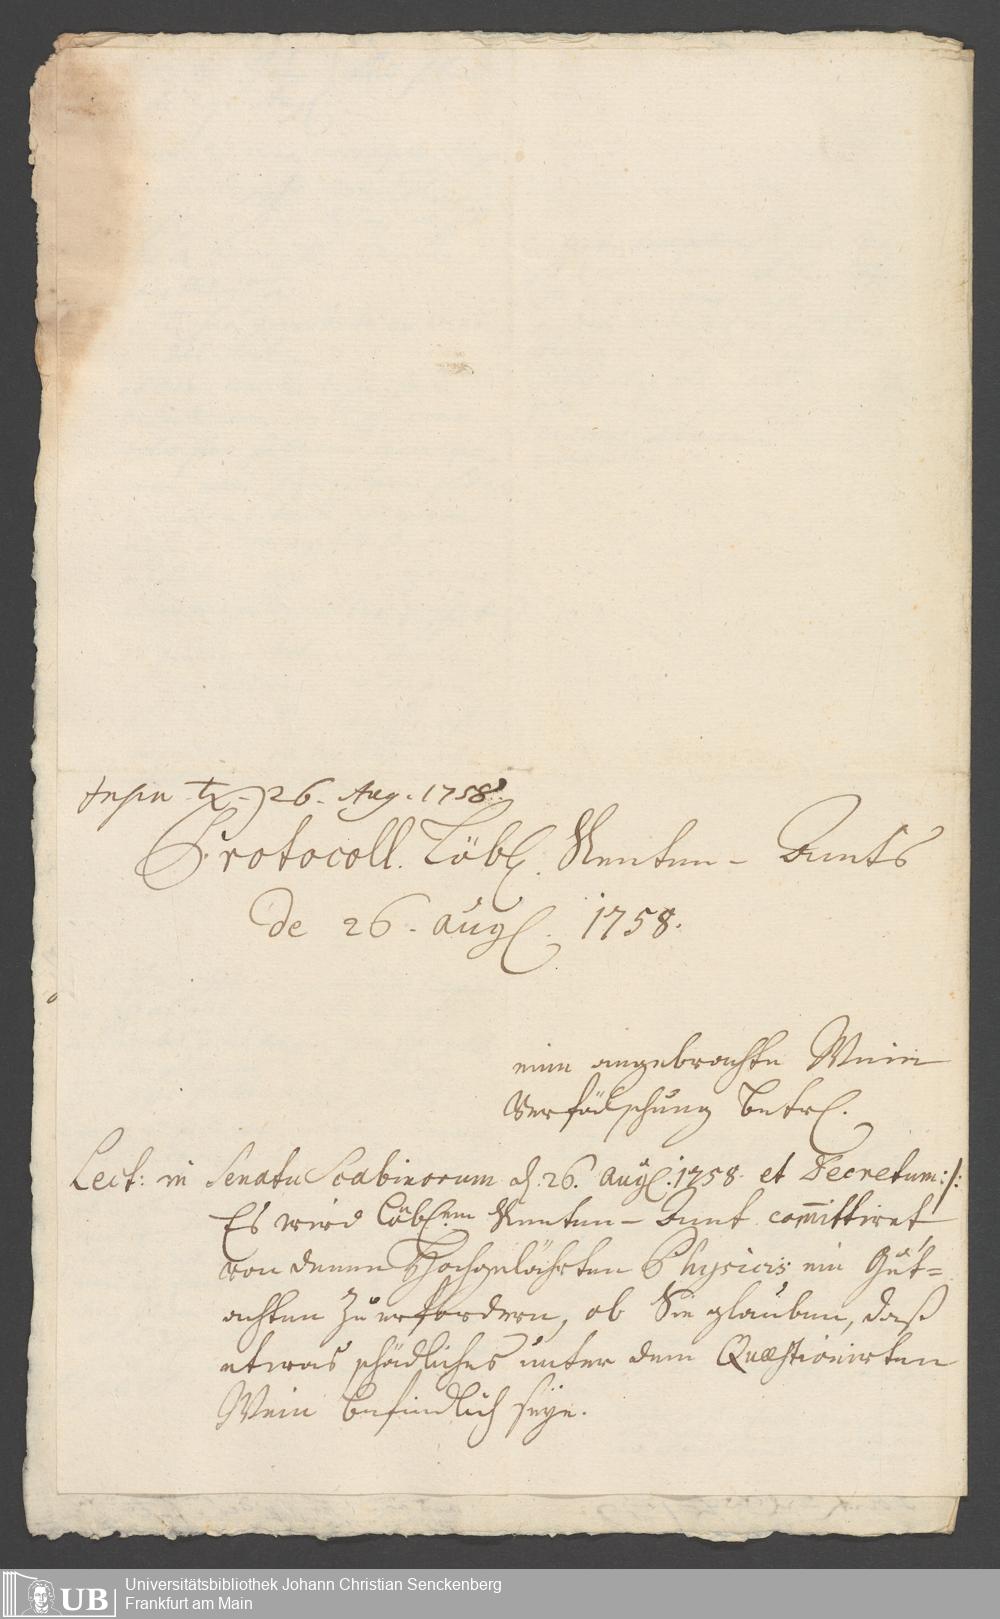 26. Aug. 1758.
Protocoll. Löbl. Renten-Amts
de 26. augl. 1758.
eine angebrachte Wein
Verfälschung betrl.
Lect: in Senatu Scabinorum d. 26. augl. 1758. et Decretum:/:
Es wird Löbl.em Renten-Amt committiret
von denen Hochgelährten Physicis ein Gut=
achten zu erfordern, ob Sie glauben, daß
etwas schädliches unter dem Quæstionirten
Wein befindlich seye.
UB Universitätsbibliothek Johann Christian Senckenberg
Frankfurt am Main